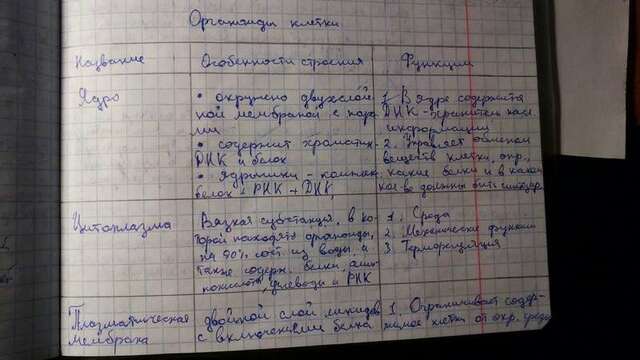 Органоиды клетки
Название Особенности строения Функции
Ядро • окружено двухслой- 1. В ядре содержится
ной мембраной с пора- ДНК - хранитель насл.
ми информации
• содержит хроматин- 2. Управляет обменом
ДНК и белок веществ клетки, опр.,
• ядрышки - комплек. какие белки и в каком
белок с РНК + ДНК, кол-ве должны быть
Цитоплазма Вязкая субстанция, в ко- 1. Среда
торой находятся органоиды, 2. Механические функции
на 90% сост. из воды, а 3. Терморегуляция
также содерж. белки, ами-
нокислоты, углеводы и РНК
Плазматическая двойной слой липидов 1. Ограничивает содер-
мембрана с включениями белка жимое клетки от окр. среды